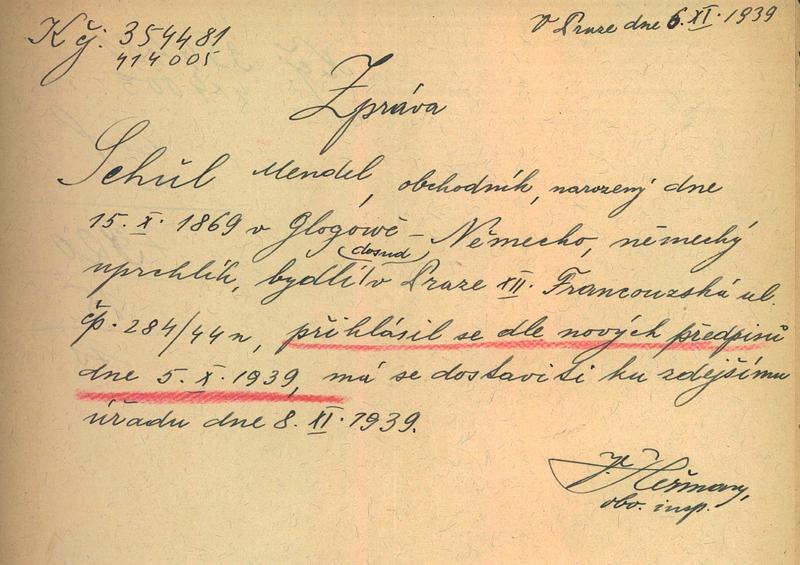 V Praze dne 6. XI. 1939
K čj. 354481
414005
Zpráva
Schül Mendel, obchodník, narozený dne
15. X. 1869 v Glogowě - Německo, německý
uprchlík, bydlí dosud v Praze XII. Francouzská ul.
čp. 284/44n, přihlásil se dle nových předpisů
dne 5. X. 1939, má se dostaviti ku zdejšímu
úřadu dne 8. XI. 1939.
obv. insp.